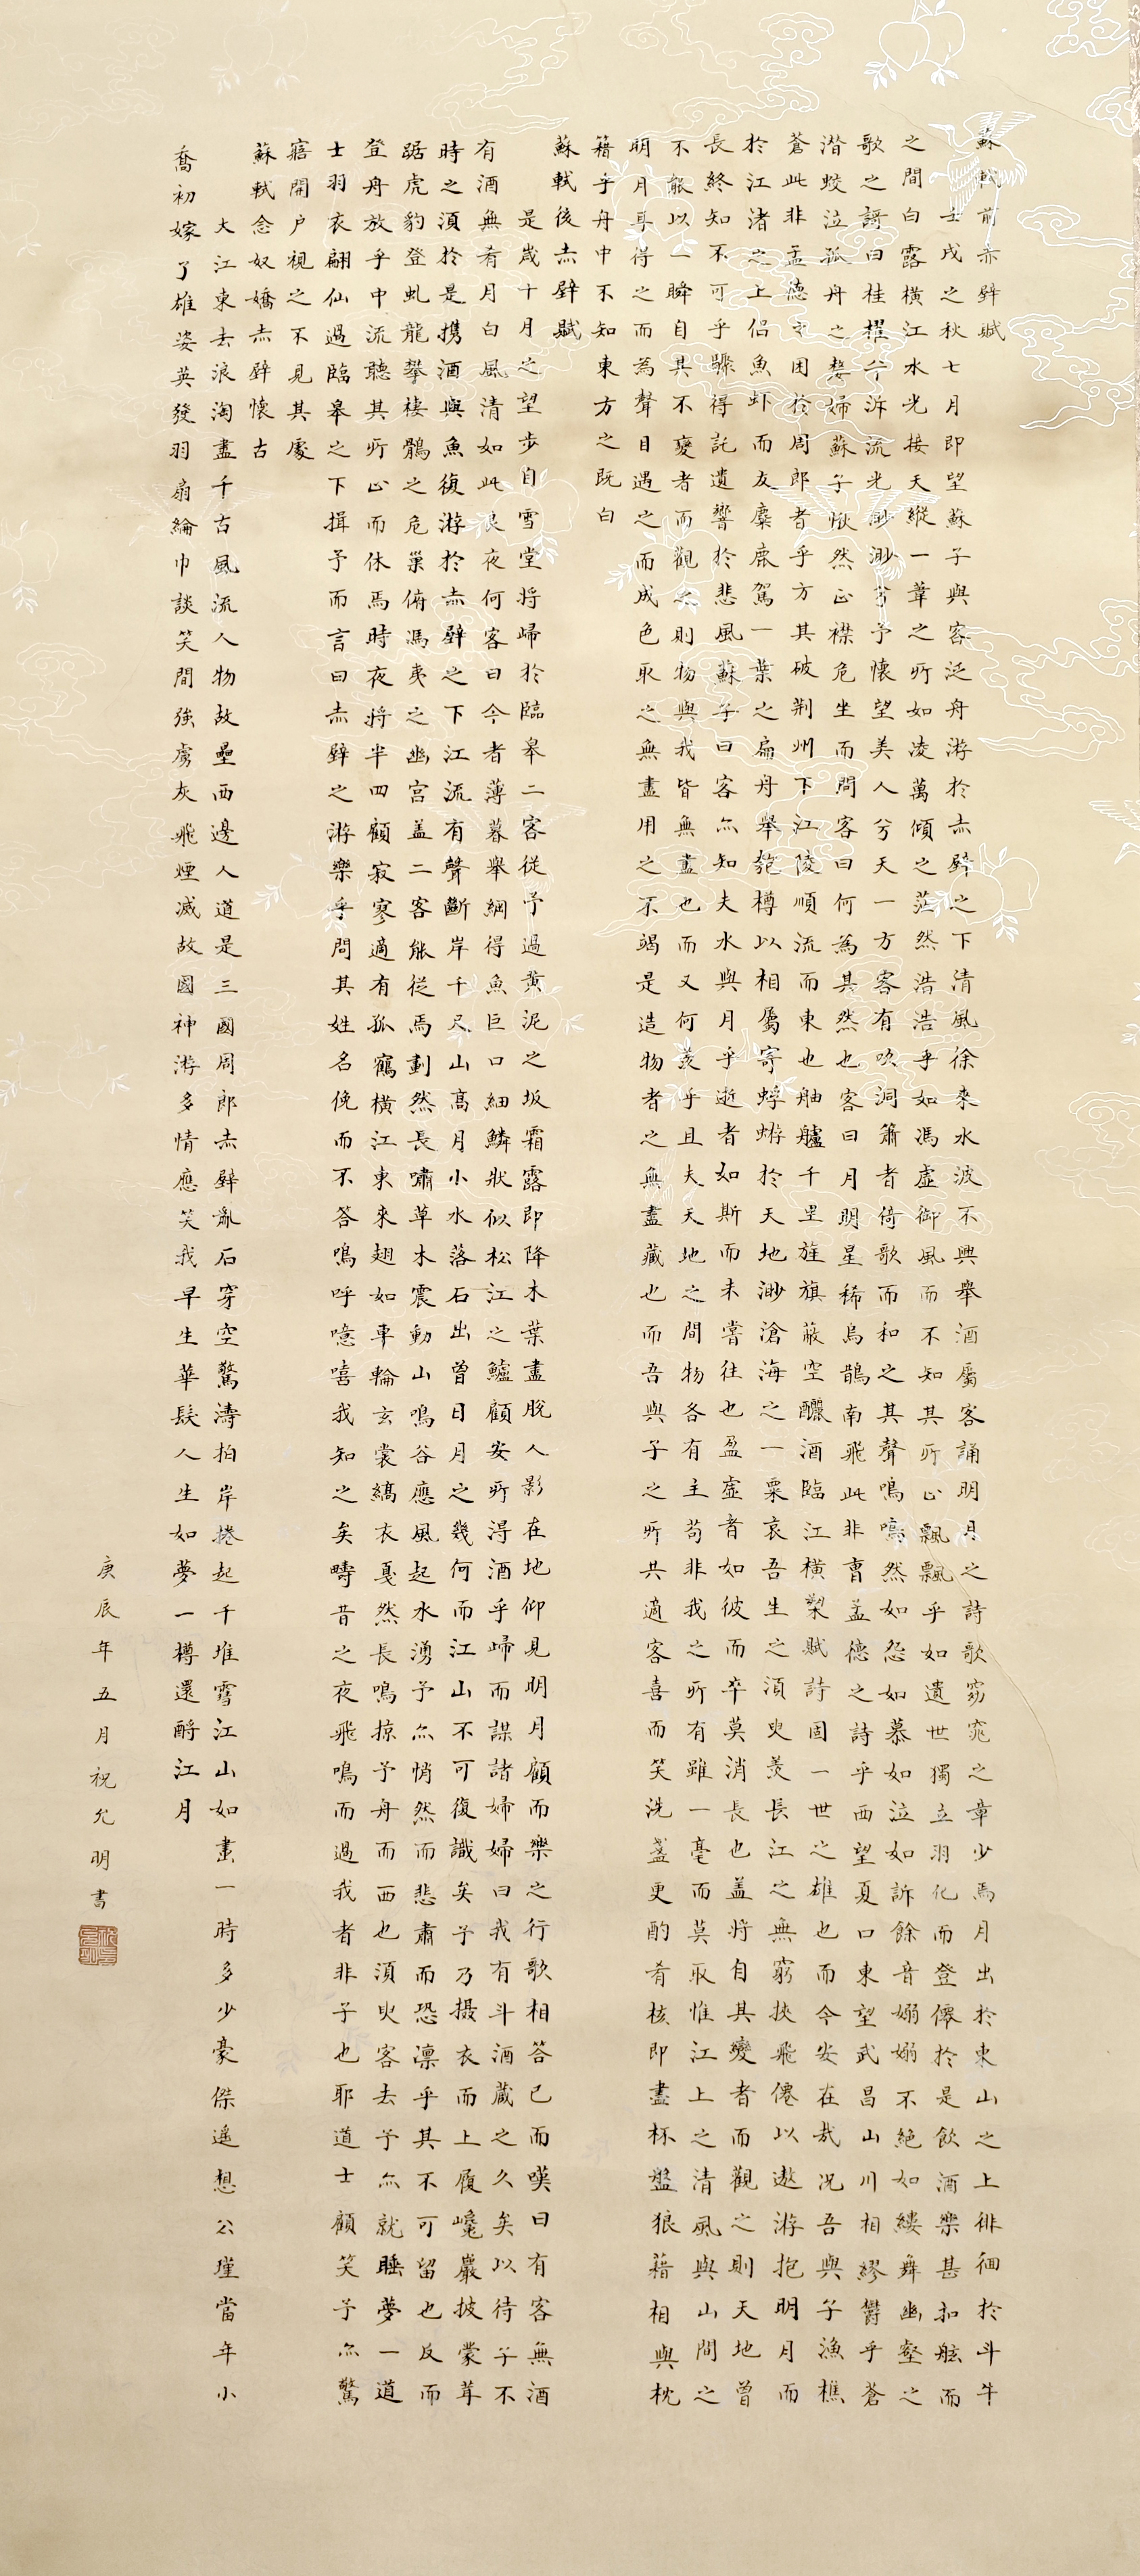 蘇軾前赤壁賦
壬戌之秋七月即望蘇子與客泛舟游於赤壁之下清風徐來水波不興舉酒屬客誦明月之詩歌窈窕之章少焉月出於東山之上徘徊於斗牛
之間白露橫江水光接天縱一葦之所如凌萬傾之茫然浩浩乎如馮虛御風而不知其所止飄飄乎如遺世獨立羽化而登僊於是飲酒樂甚扣舷而
歌之謌曰桂櫂兮泝流光渺渺兮予懷望美人兮天一方客有吹洞簫者倚歌而和之其聲嗚嗚然如怨如慕如泣如訴餘音嫋嫋不絕如縷舞幽壑之
潛蛟泣孤舟之嫠婦蘇子愀然正襟危坐而問客曰何為其然也客曰月明星稀烏鵲南飛此非曹孟德之詩乎西望夏口東望武昌山川相繆鬱乎蒼
蒼此非孟德之困於周郎者乎方其破荆州下江陵順流而東也舳艫千里旌旗蔽空釃酒臨江橫槊賦詩固一世之雄也而今安在哉况吾與子漁樵
於江渚之上侶魚虾而友麋鹿駕一葉之扁舟舉匏樽以相屬寄蜉蝣於天地渺滄海之一粟哀吾生之須臾羡長江之無窮挾飛僊以遨游抱明月而
長終知不可乎驟得託遺響於悲風蘇子曰客亦知夫水與月乎逝者如斯而未嘗往也盈虛者如彼而卒莫消長也盖將自其變者而觀之則天地曾
不能以一瞬自其不變者而觀之則物與我皆無盡也而又何羡乎且夫天地之間物各有主苟非我之所有雖一毫而莫取惟江上之清風與山間之
明月耳得之而為聲目遇之而成色取之無盡用之不竭是造物者之無盡藏也而吾與子之所共適客喜而笑洗盞更酌肴核即盡杯盤狼藉相與枕
籍乎舟中不知東方之既白
蘇軾後赤壁賦
是歲十月之望步自雪堂將歸於臨皋二客從予過黄泥之坂霜露即降木葉盡脫人影在地仰見明月顧而樂之行歌相答已而嘆曰有客無酒
有酒無肴月白風清如此良夜何客曰今者薄暮舉網得魚巨口細鱗狀似松江之鱸顧安所得酒乎歸而謀諸婦婦曰我有斗酒藏之久矣以待子不
時之須於是攜酒與魚復游於赤壁之下江流有聲斷岸千尺山高月小水落石出曾日月之幾何而江山不可復識矣予乃摄衣而上履巉巖披蒙茸
踞虎豹登虬龍攀棲鶻之危巢俯馮夷之幽宮盖二客能從焉劃然長嘯草木震動山鳴谷應風起水湧予亦悄然而悲肅而恐凛乎其不可留也反而
登舟放乎中流聽其所止而休焉時夜將半四顧寂寥適有孤鶴橫江東來翅如車輪玄裳縞衣戛然長鳴掠予舟而西也須臾客去予亦就睡夢一道
士羽衣翩仙過臨皋之下揖予而言曰赤壁之游樂乎問其姓名俛而不答嗚呼噫嘻我知之矣疇昔之夜飛鳴而過我者非子也耶道士顧笑予亦驚
寤開户視之不見其處
蘇軾念奴嬌赤壁懷古
大江東去浪淘盡千古風流人物故壘西邊人道是三國周郎赤壁亂石穿空驚濤拍岸捲起千堆雪江山如畫一時多少豪傑遥想公瑾當年小
喬初嫁了雄姿英發羽扇綸巾談笑間強虜灰飛煙滅故國神游多情應笑我早生華髮人生如夢一樽還酹江月
庚辰年五月祝允明書